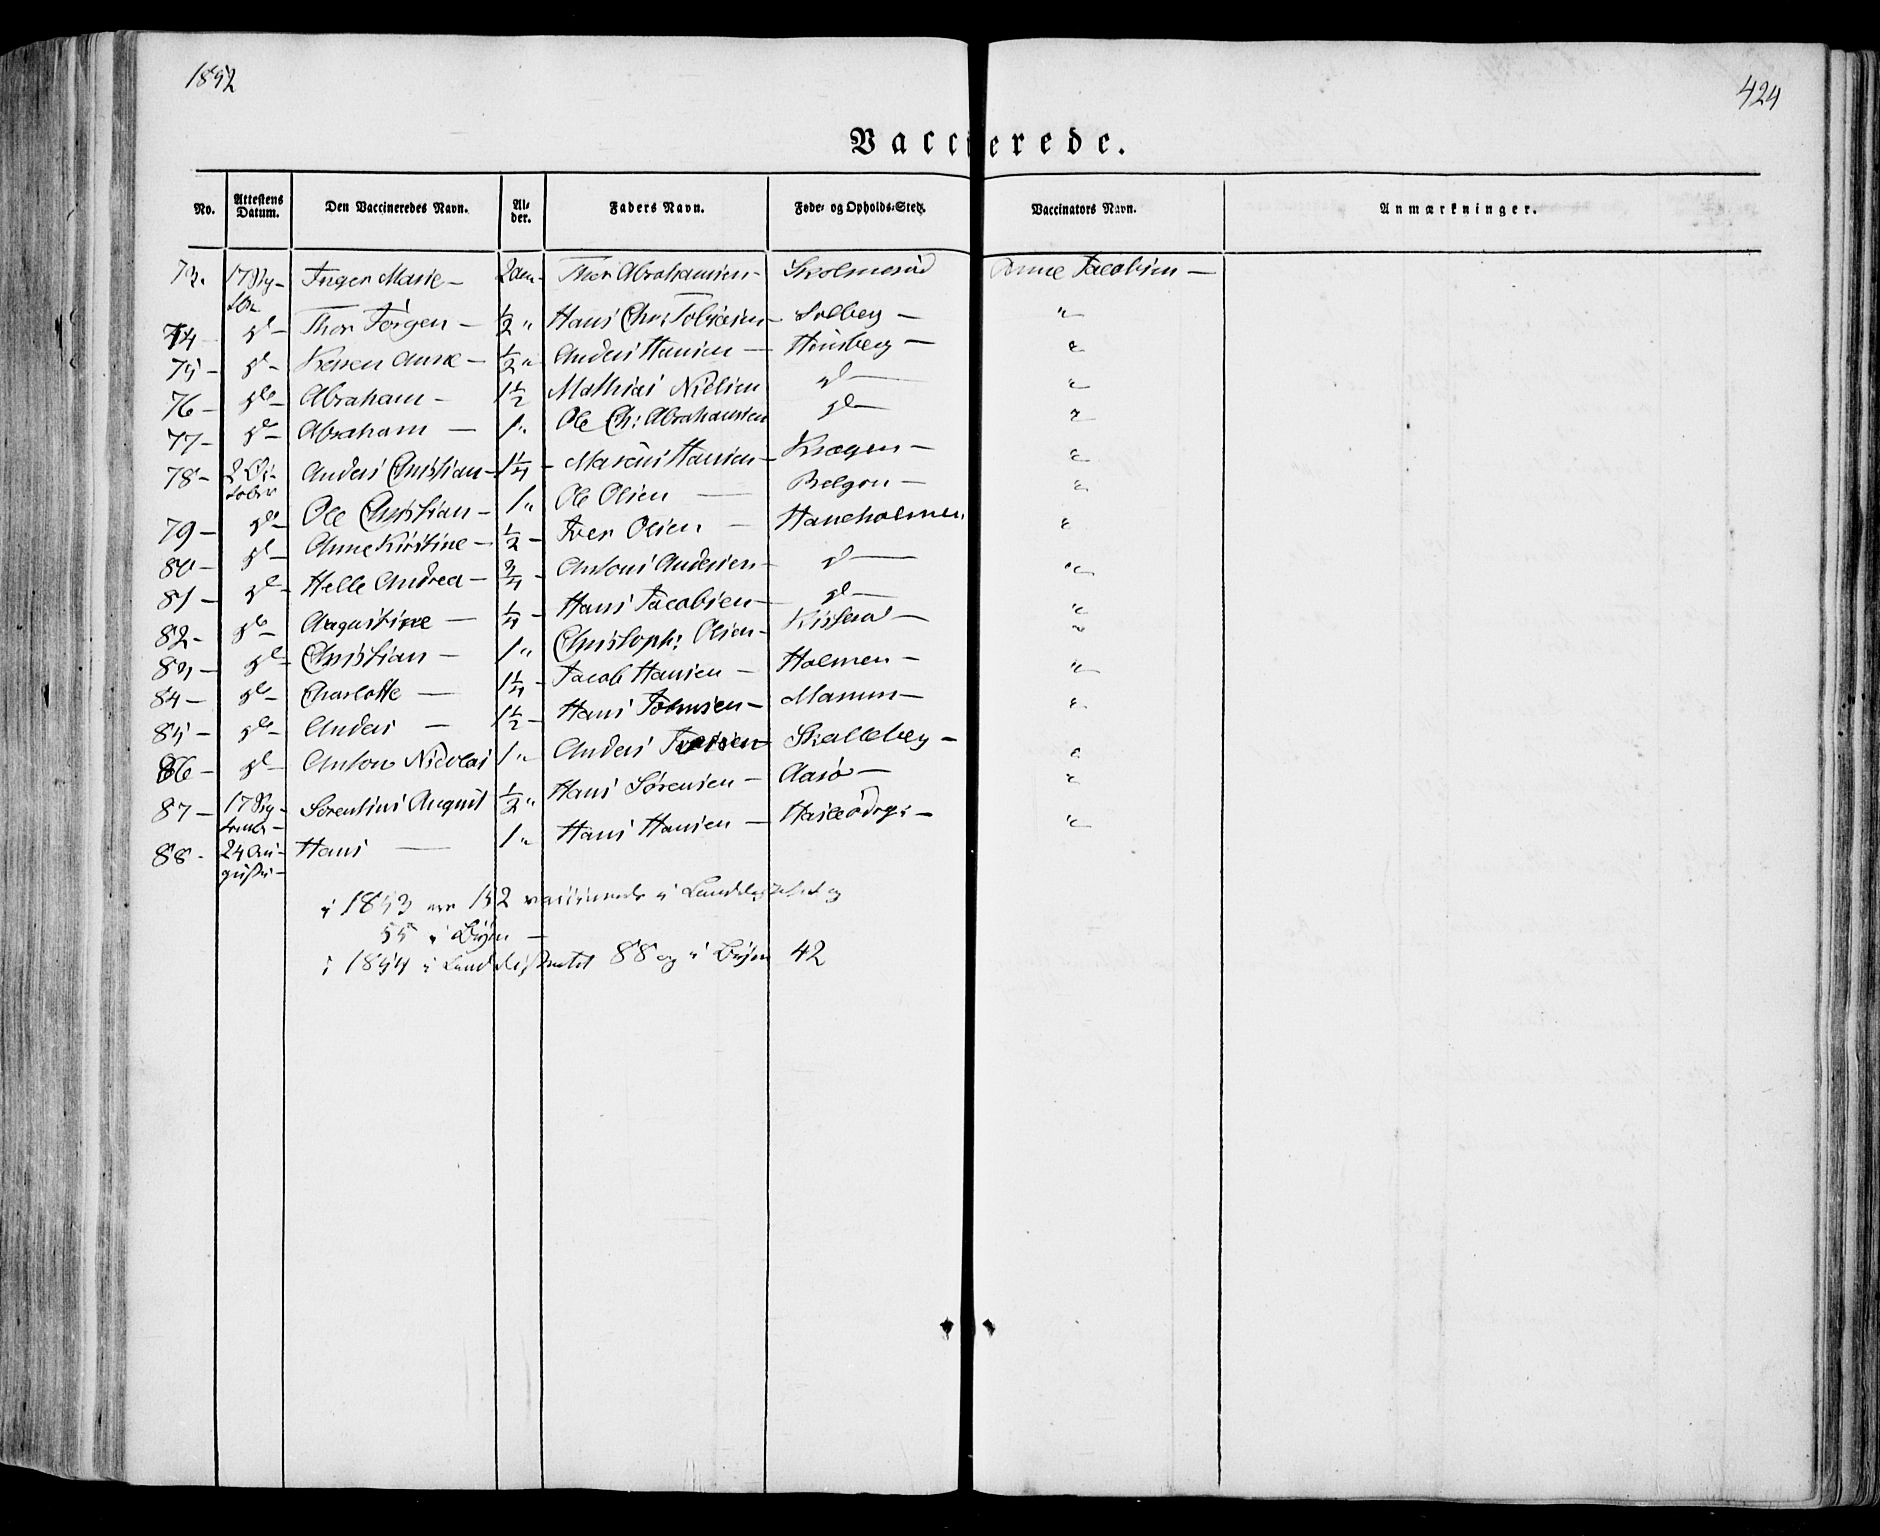 1852
424
Vaccinerede.
No. Attestens Datum. Den Vaccineredes Navn. Al-der. Faders Navn. Føde- og Opholds-Sted. Vaccinators Navn. Anmærkninger.
73. 17 Sep- Inger Marie - Thor Abrahamsen - Anne Jacobsen -
74 - d - Thor Jørgen - 1/2 " Hans Chr: Tobiasen - Solberg - "
75 - d - Karen Anne - 1/2 " Anders Hansen - Heisberg - "
76 - do - Abraham - 1 1/2 Mathias Nielsen d - "
77 - do - Abraham - 1 " Ole Ch: Abrahamsen do - "
78 - 2 Oc-tober Anders Christian - 1 1/4 - Marcus Hansen - Kragen - "
79 - do - Ole Christian - 1 " Ole Olsen - Belgen - "
80 - d - Anne Kirstine - 1/2 - Iver Olsen - Haneholmen "
81 - do - Helle Andrea - 3/4 - Antoni Andersen - d - "
82 - do - Augustine - 1/4 - Hans Jacobsen - do - "
83 - do - Christian - 1 " Christoph: Olsen - "
84 - do - Charlotte - 1 1/4 - Jacob Hansen - Holmen - "
85 - do - Anders - 1 1/2 - Hans Johnsen - "
86 - d - Anton Nicolai 1 " Anders Iversen Skalleberg - "
87 - 17 Sep-tembr - Sorentius August 1/2 " Hans Sørensen - Aasø - "
88 - 24 Au-gust - Hans - 1 " Hans Hansen - "
i 1853 ere 152 vaccinerede i Landdistrictet og
55 i Byen -
i 1854 i Landdistrictet 88 og i Byen 42